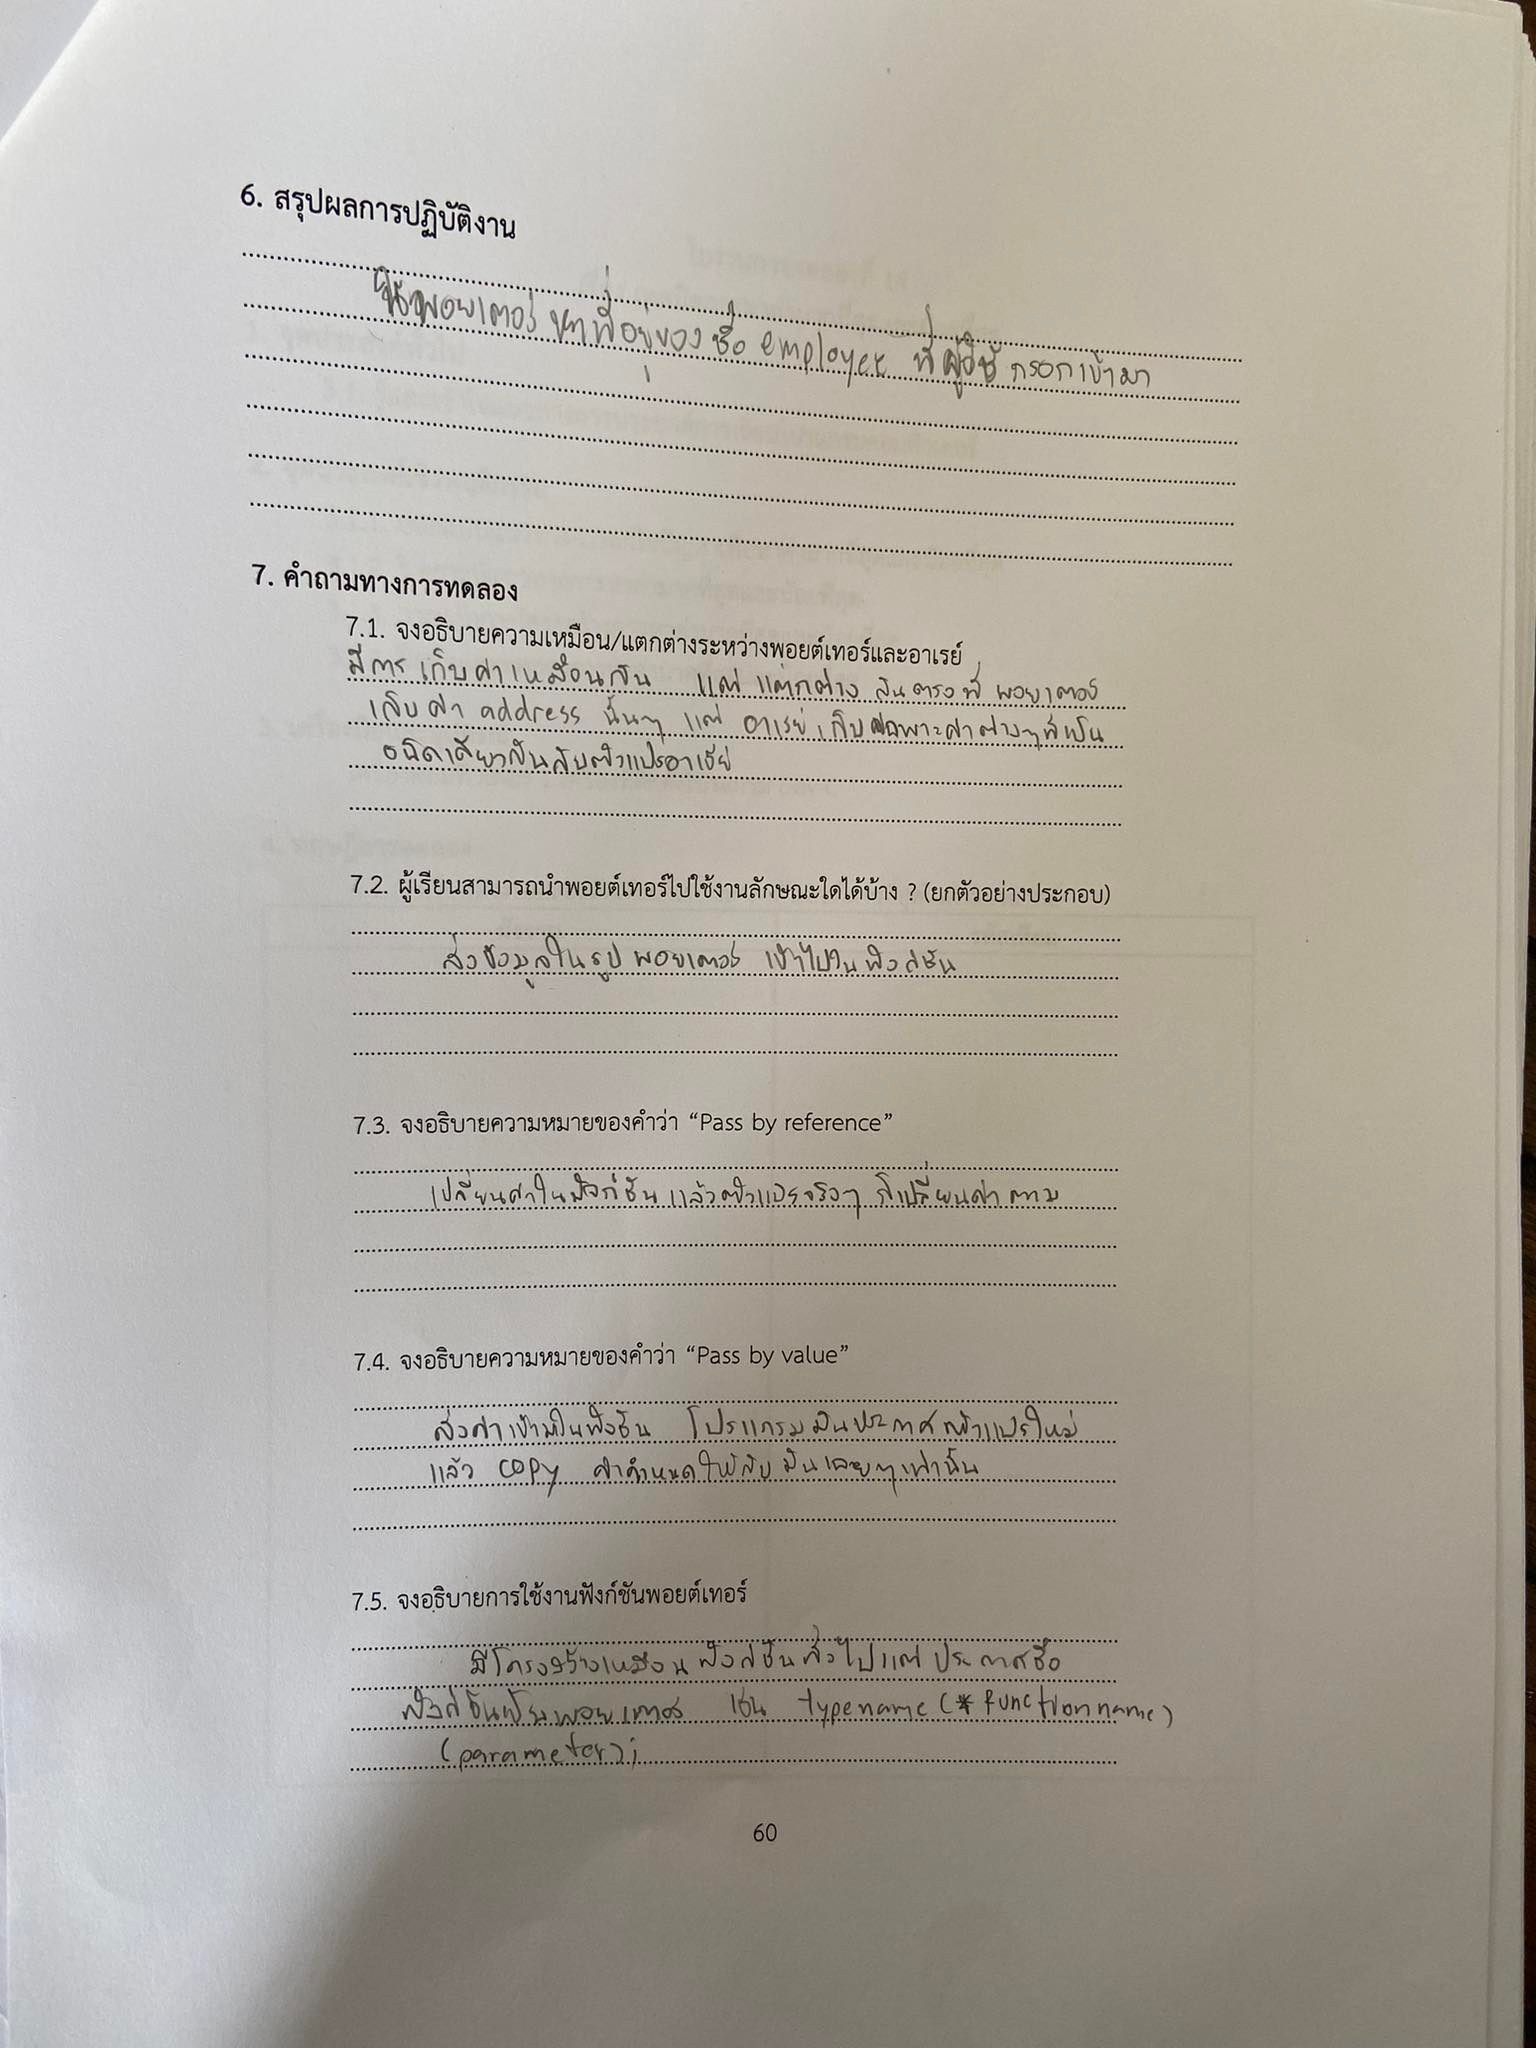 6. สรุปผลการปฏิบัติงาน
ใช้พอยเตอร์ หาที่อยู่ของ ชื่อ employee ที่ผู้ใช้ กรอกเข้ามา
7. คำถามทางการทดลอง
7.1. จงอธิบายความเหมือน/แตกต่างระหว่างพอยต์เทอร์และอาเรย์
มีการ เก็บค่าเหมือนกัน แต่ แตกต่าง กันตรงที่ พอยเตอร์
เก็บค่า address นั้นๆ แต่ อาเรย์เก็บเฉพาะค่าต่างๆที่เป็น
ชนิดเดียวกันกับตัวแปรอาเรย์
7.2. ผู้เรียนสามารถนำพอยต์เทอร์ไปใช้งานลักษณะใดได้บ้าง ? (ยกตัวอย่างประกอบ)
ส่งข้อมูลในรูป พอยเตอร์ เข้าไปใน ฟังก์ชัน
7.3. จงอธิบายความหมายของคำว่า “Pass by reference”
เปลี่ยนค่าในฟังก์ชัน แล้วตัวแปรจริงๆ ก็เปลี่ยนค่า ตาม
7.4. จงอธิบายความหมายของคำว่า “Pass by value”
ส่งค่าเข้ามาในฟังชัน โปรแกรมมันประกาศตัวแปรใหม่
แล้ว copy ค่ากำหนดให้กับ มันเฉยๆเท่านั้น
7.5. จงอธิบายการใช้งานฟังก์ชันพอยต์เทอร์
มีโครงสร้างเหมือน ฟังก์ชันทั่วไปแต่ ประกาศชื่อ
ฟังก์ชันเป็นพอยเตอร์ เช่น typename (* functionname)
(parameter);
60